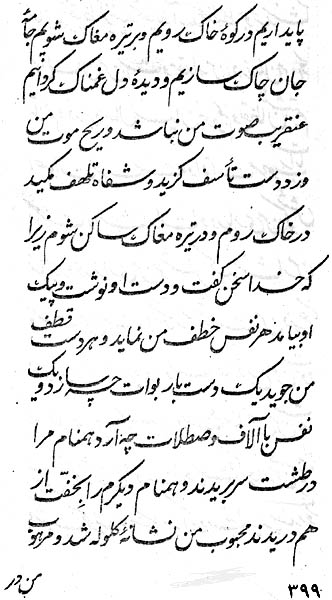 پایداریم در کوهٔ خاک رویم و بر تیره مغاک شویم جامهٔ
جان چاک سازیم و دیدهٔ دل غمناک گردانیم
عنقریب صوت من نباشد و ریح موت من
وزد دست تأسف گزید و شفاه تلهف مکید
در خاک روم و در تیره مغاک ساکن شوم زیرا
که خدا سخن گفت و دست او نوشت و پیک
او بیامد هر نفس خطف من نماید و هر دست قطیف
من جوید یک دست با ربوات چه سازد و یک
نفس با آلاف و صطلات چه آرد همنام مرا
در طشت سر بریدند و همنام دیگرم را بخفت از
هم دریدند محبوب من نشانهٔ گلوله شد و مرهوب
۳۹۹
من در